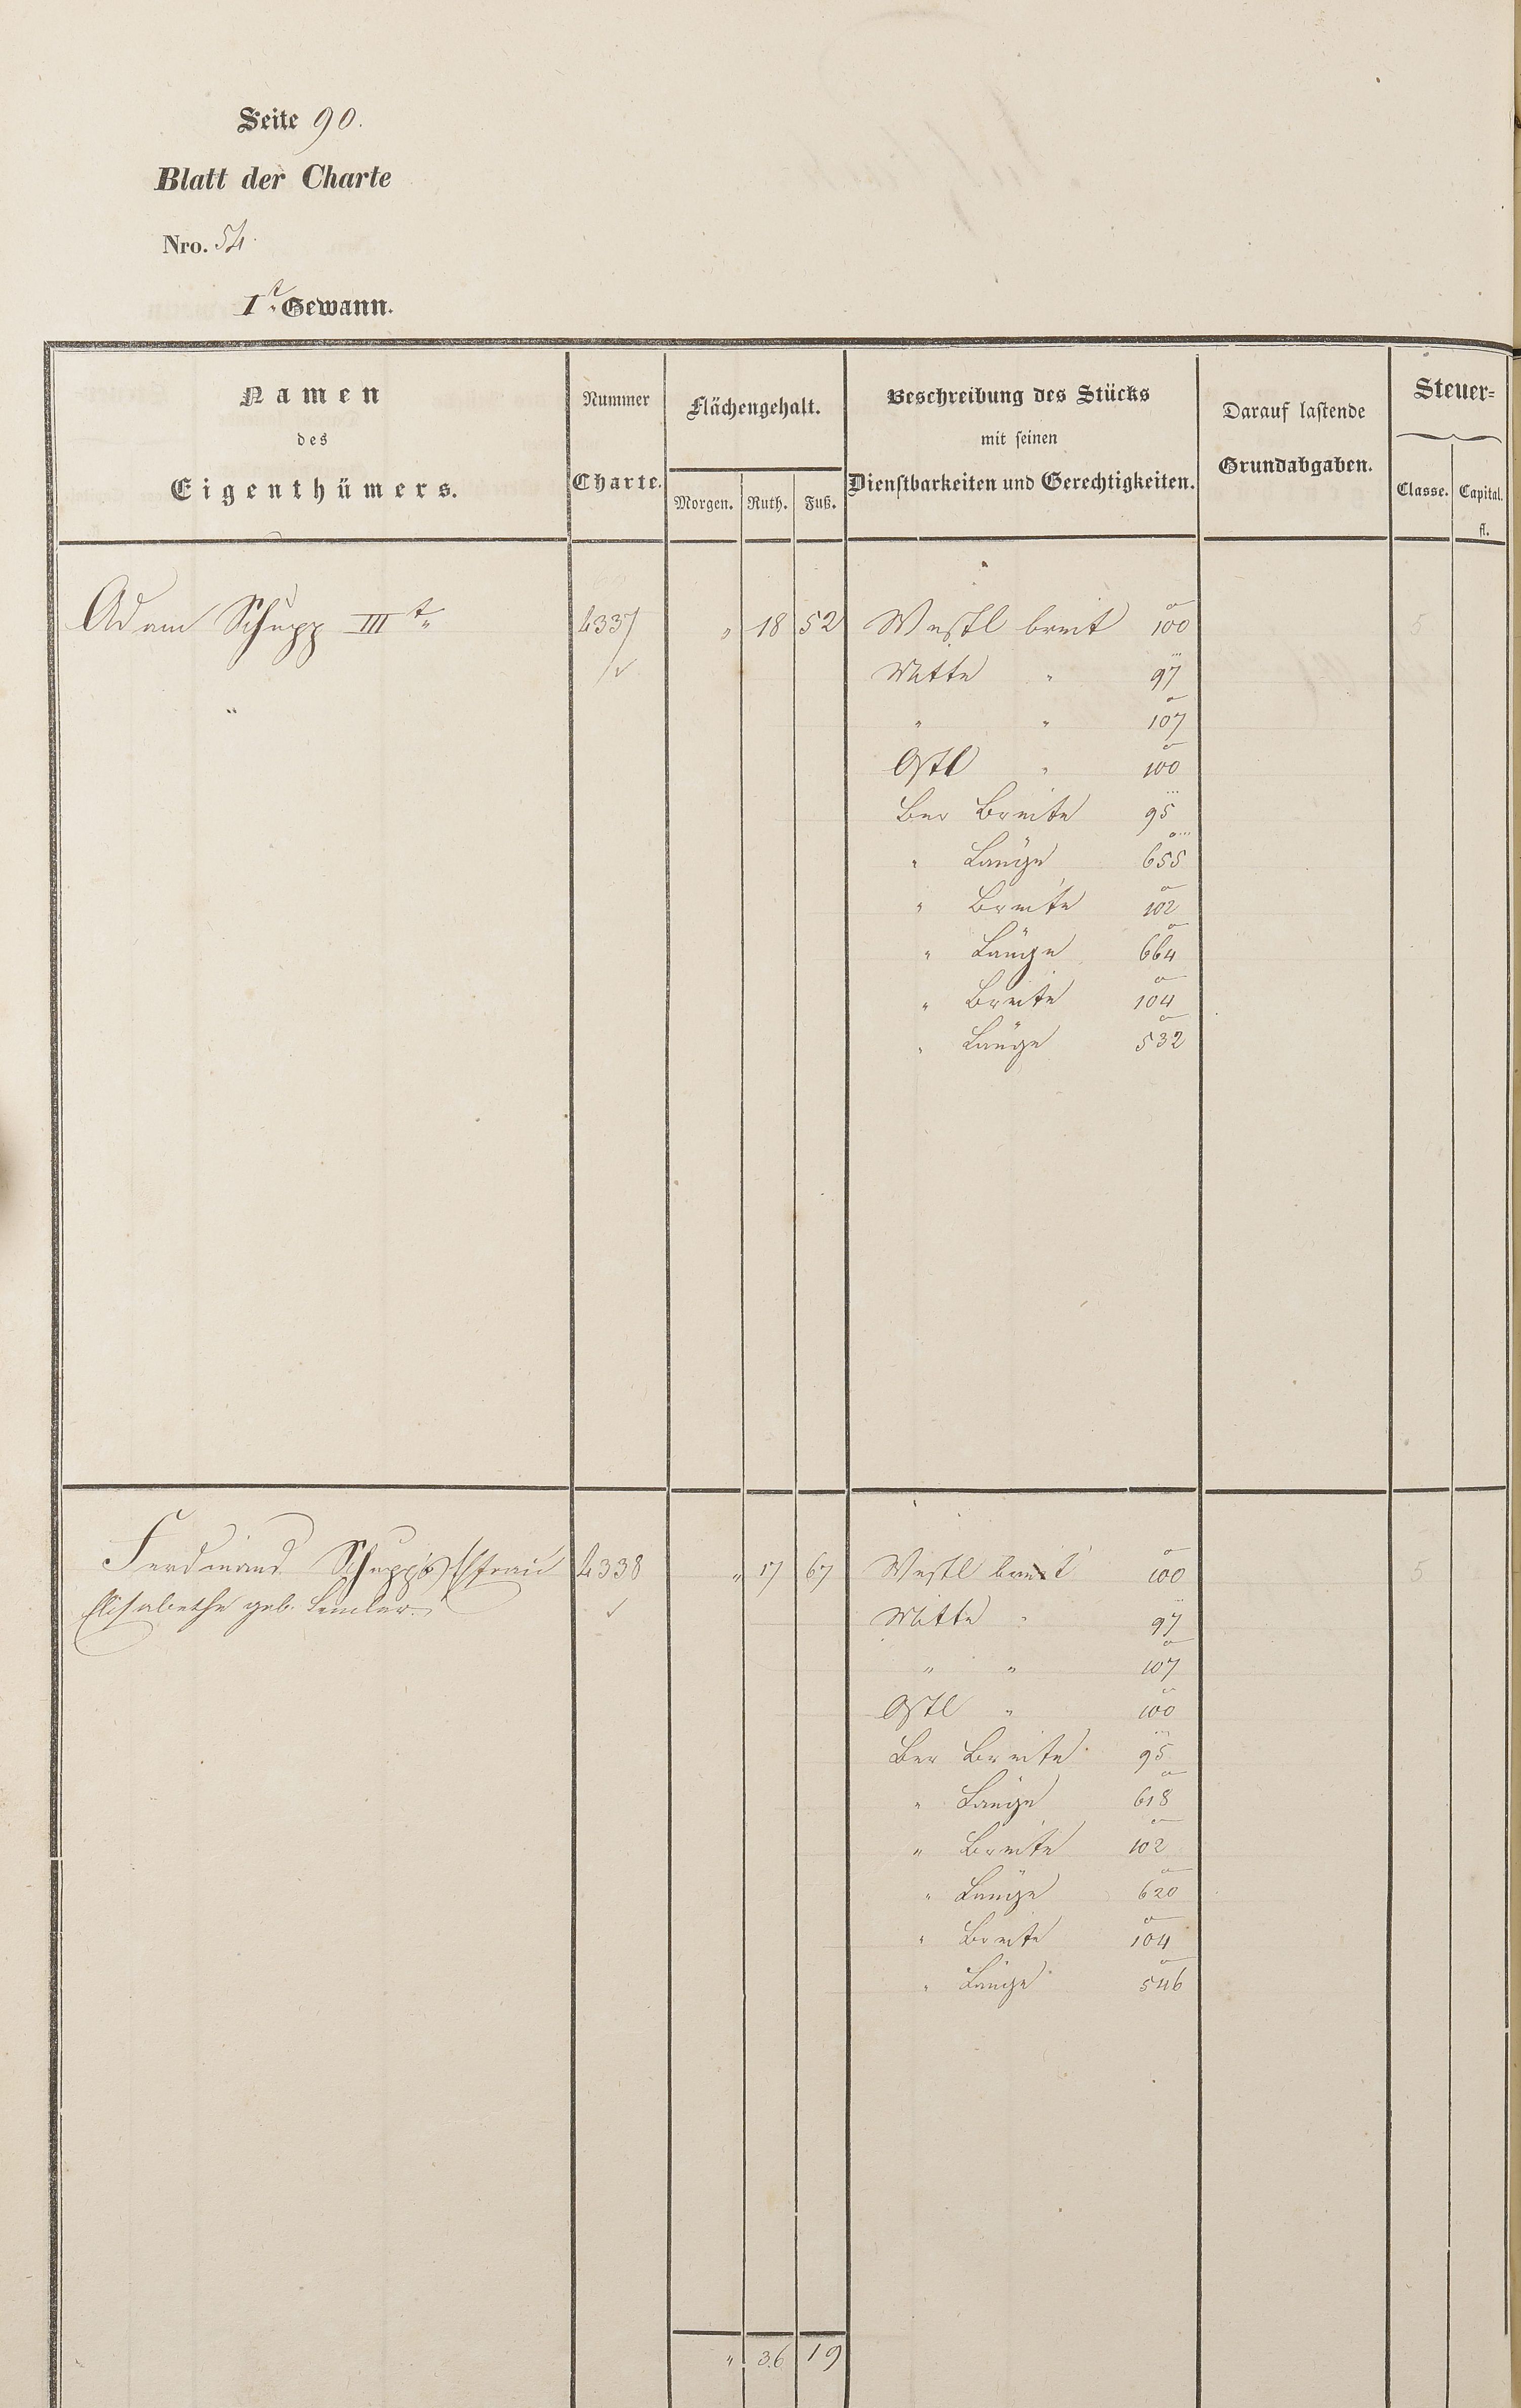 Seite 90.
Blatt der Charte
Nro. 54.
I.t Gewann.
Namen des Eigenthümers.
Nummer Charte.
Flächengehalt.
Morgen. Ruth. Fuß.
Beschreibung des Stücks mit seinen Dienstbarkeiten und Gerechtigkeiten.
Darauf lastende Grundabgaben.
Steuer=
Classe. Capital. fl.
Adam Schupp III t. 4337 " 18 52 Westl breit 100 5
Mitte " 97
" " 107
Ostl " 100
Ber Breite 95
" Länge 655
" Breite 102
" Länge 664
" Breite 104
" Länge 532
Ferdinand Schupp's Ehefrau 4338 " 17 67 Westl breit 100 5
Elisabethe geb. Mitte " 97
" " 107
Ostl " 100
Ber Breite 95
" Länge 618
" Breite 102
" Länge 620
" Breite 104
" Länge 546
" 36 19